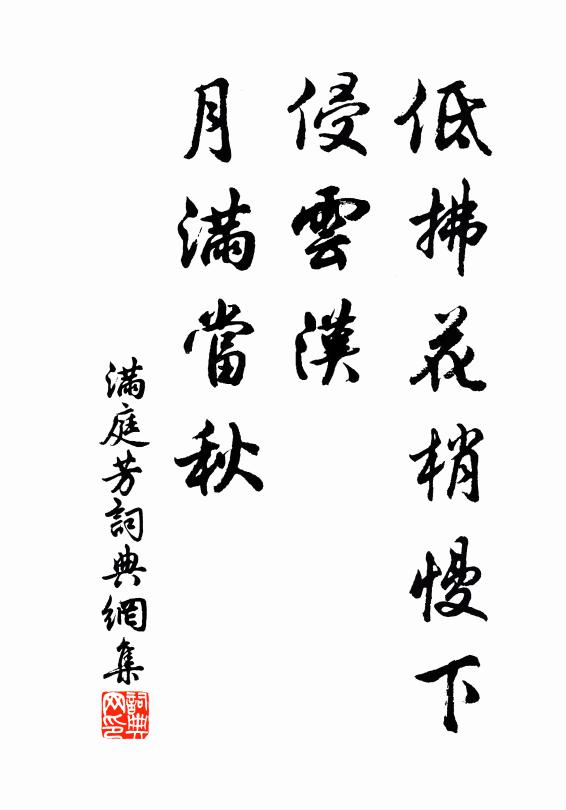 低拂花梢慢下
侵雲漢
月滿當秋
滿庭芳詞典網集
詞典網印